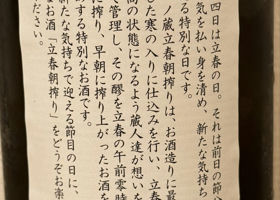 四日は立春の日。それは前日の節分
気を払い身を清め、新たな気持ち
る特別な日です。
ノ蔵立春朝搾りは、お酒造りに最
た寒の入りに仕込みを行い、立春
高の状態になるよう蔵人達が想いを
て管理し、その醪を立春の午前零時
に搾り、早朝に搾り上がったお酒を
する特別なお酒です。
新たな気持ちで迎える節目の日に、
なお酒「立春朝搾り」をどうぞお楽
ださい。